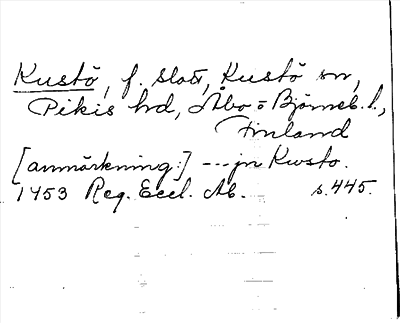 Kustö, f. slott, Kustö sn,
Pikis hd, Åbo = Björneb. l.,
Finland
[anmärkning:] --- jn Kwsto.
1453 Reg. Eccl. Ab. s. 445.